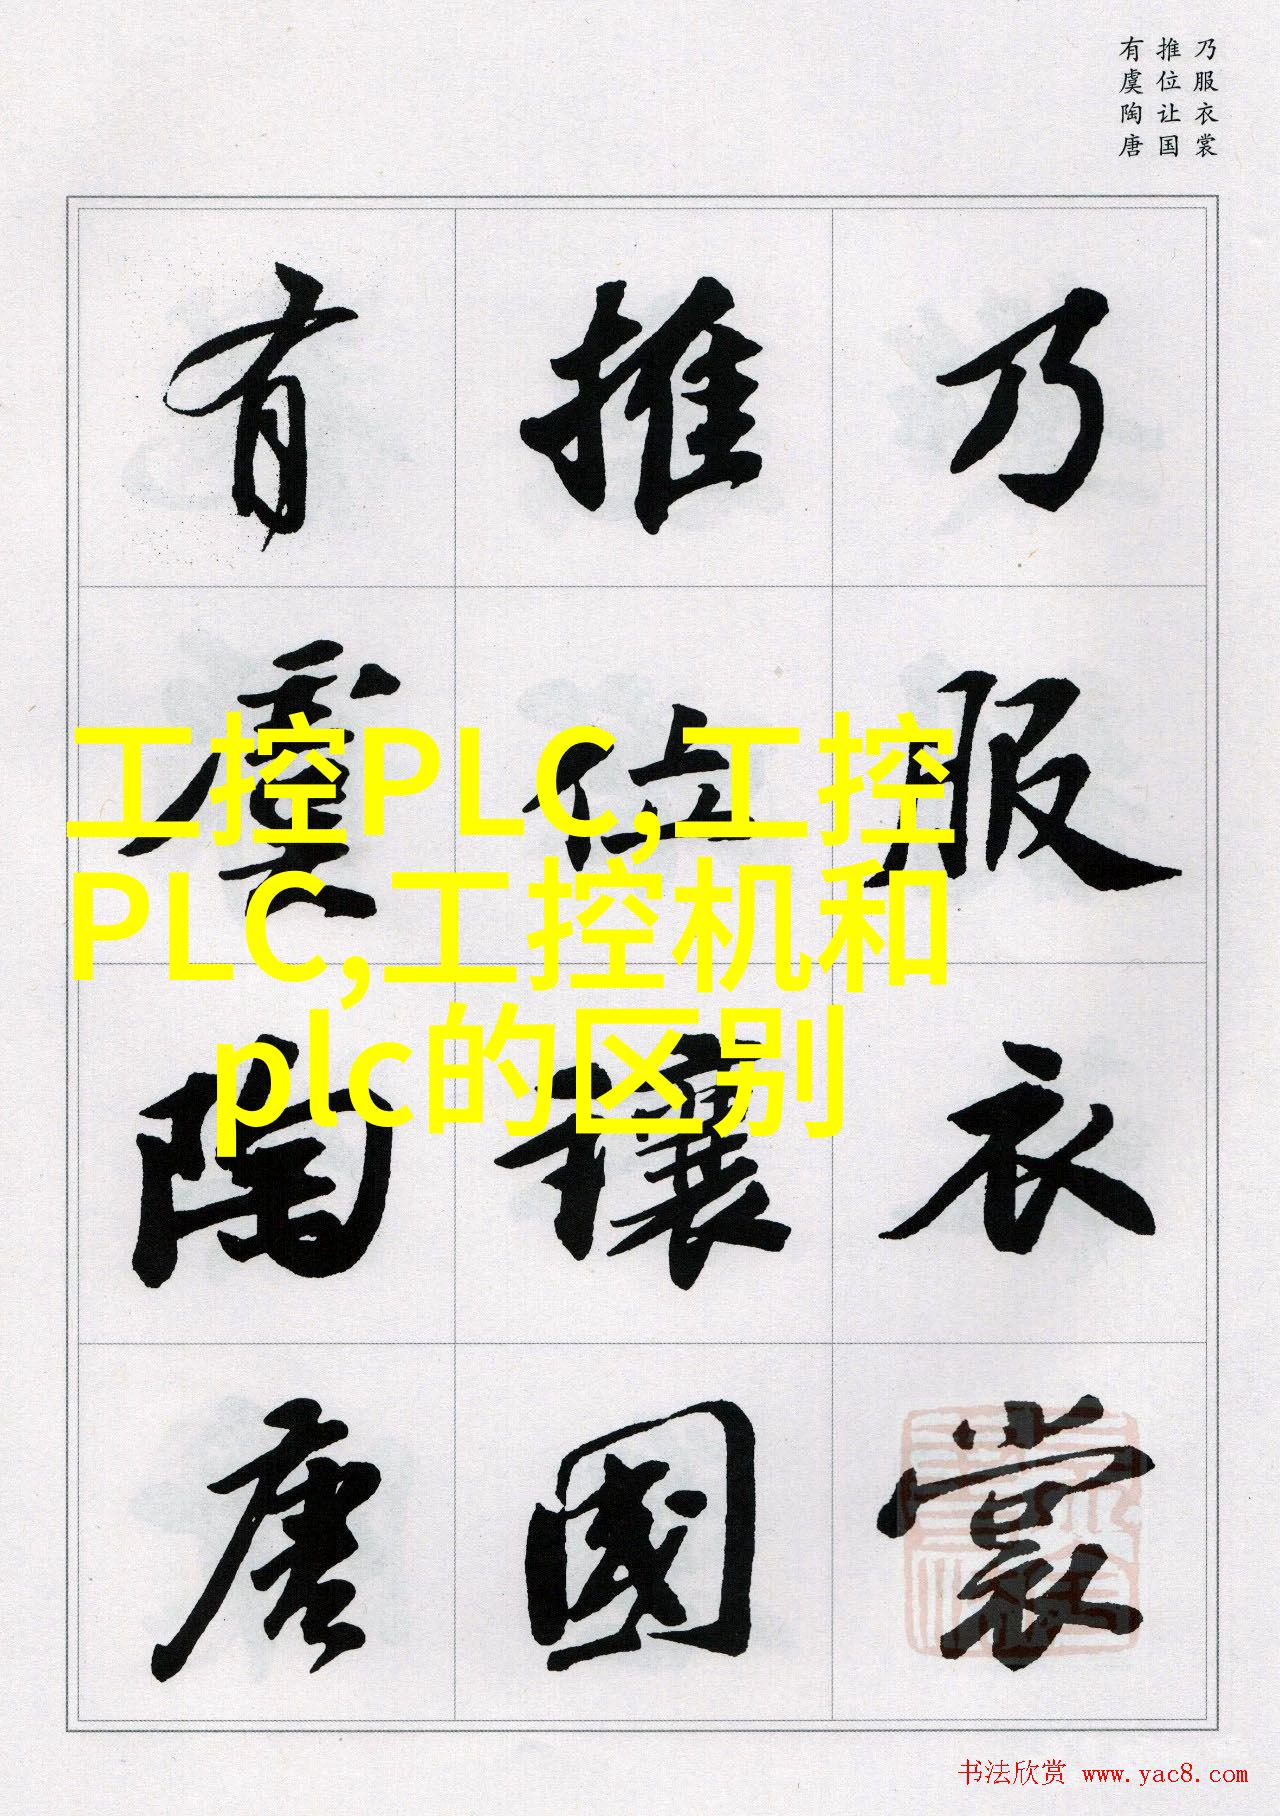 乃服衣裳
推位让国
有虞陶唐
乃服衣裳
推位讓國
有虞陶唐
工控PLC,工控
PLC,工控机和
plc的区别
书法欣赏 www.yac8.com